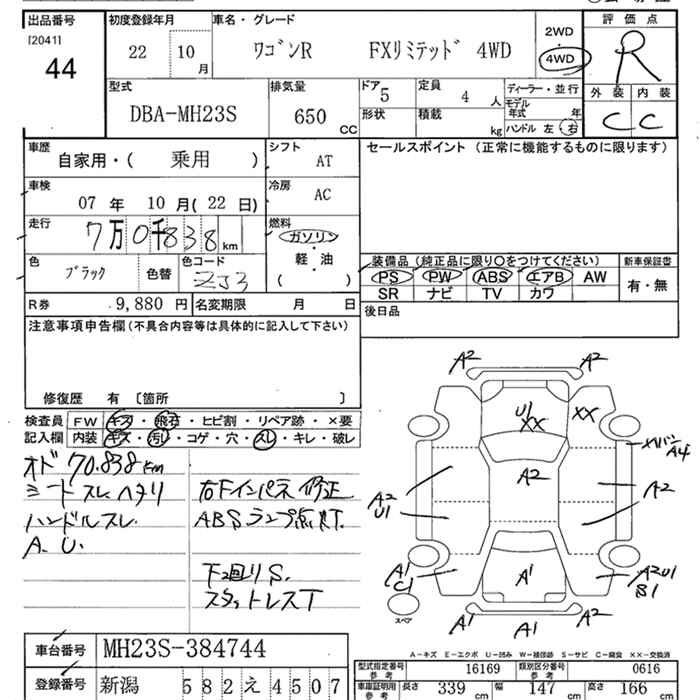 出品番号
[2041]
44
初度登録年月
22 10 月
車名・グレード
ワゴンR FXリミテッド 4WD
2WD
4WD
評価点
R
外装 内装
C C
型式
DBA-MH23S
排気量
650 CC
ドア 5
形状
定員 4 人
積載 kg
ディーラー・並行
モデル年式 年
ハンドル 左 右
車歴
自家用・( 乗用 )
シフト AT
車検
07 年 10 月( 22 日)
冷房 AC
走行
7万0千838 km
燃料
ガソリン
軽・油
( )
色
ブラック
色替
色コード
ZJ3
R券 9,880 円
名変期限 月 日
セールスポイント (正常に機能するものに限ります)
装備品 (純正品に限り○をつけてください)
PS PW ABS エアB AW
SR ナビ TV カワ
新車保証書
有・無
後日品
注意事項申告欄(不具合内容等は具体的に記入して下さい)
修復歴 有 〔箇所 〕
検査員記入欄
FW キズ・飛石・ヒビ割・リペア跡・×要
内装 キズ・汚れ・コゲ・穴・スレ・キレ・破レ
オド 70.838km
シートスレヘタリ
ハンドルスレ
A. U.
右下インパネ修正
ABSランプ点灯
下回りS.
スタットレスT
A2 A2
U1
XX
XX
A4
A2
A2
U1
A2
A1
C1
A1
A2U1
B1
スペア
A1 A1 A2
A-キズ E-エクボ U-凹み W-補修跡 S-サビ C-腐食 XX-交換済
車台番号
MH23S-384744
登録番号
新潟 582 え 4507
型式指定番号 参考 16169
類別区分番号 参考 0616
車庫証明用 参考
長さ 339 cm
幅 147 cm
高さ 166 cm